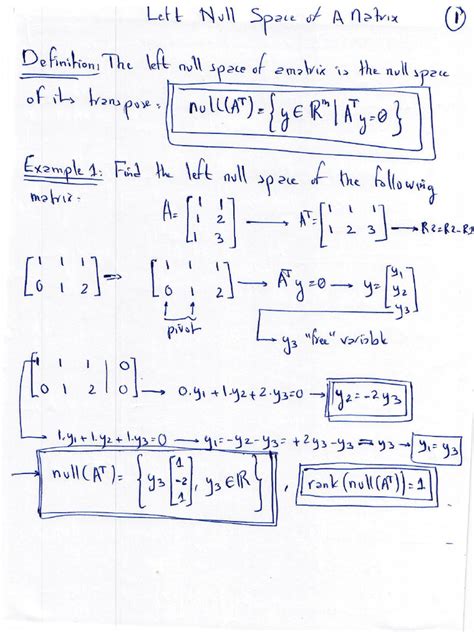 Left Null Space of A Matrix ①
Definition: The left null space of a matrix is the null space
of its transpose: null(Aᵀ) = { y ∈ ℝᵐ | Aᵀy = 0 }
Example 1: Find the left null space of the following
matrix: A = [1 1; 1 2; 1 3] → Aᵀ = [1 1 1; 1 2 3] → R2=R2-R1
[1 1 1; 0 1 2] ⇒ [1 1 1; 0 1 2] → Aᵀy=0 → y = [y₁; y₂; y₃]
pivot
y₃ "free" variable
[1 1 1 | 0; 0 1 2 | 0] → 0.y₁+1.y₂+2.y₃=0 → y₂=-2y₃
1.y₁+1.y₂+1.y₃=0 → y₁=-y₂-y₃=+2y₃-y₃=y₃ → y₁=y₃
null(Aᵀ) = { y₃ [1; -2; 1], y₃ ∈ ℝ }, rank(null(Aᵀ))=1